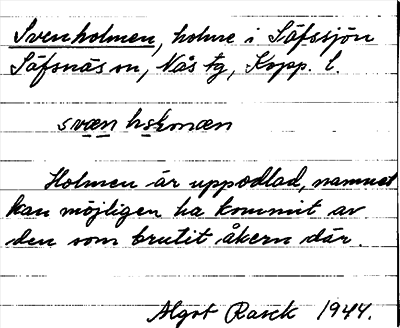 Svenholmen, holme i Säfssjön
Säfsnäs sn, Nås tg, Kopp. l.
Holmen är uppodlad, namnet
kan möjligen ha kommit av
den som brutit åkern där.
Algot Rasck 1944.